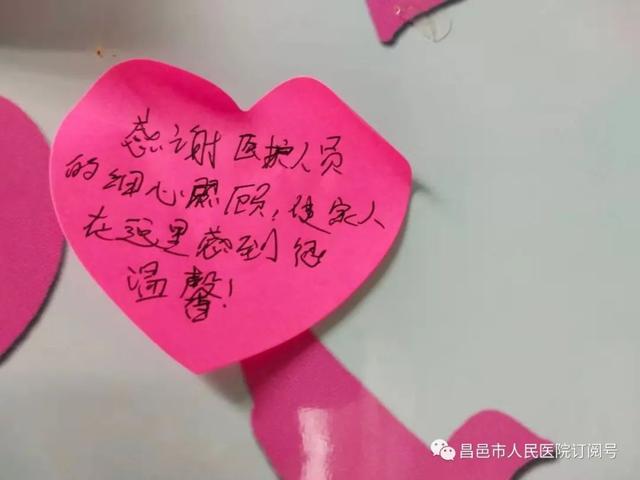 感谢医护人员
的细心照顾，使家人
在这里感到很
温馨！
昌邑市人民医院订阅号